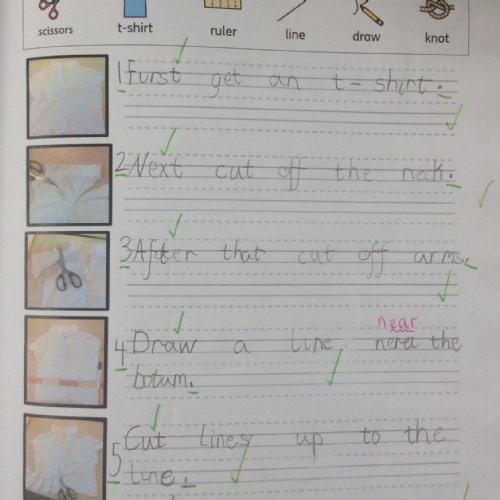 scissors t-shirt ruler line draw knot
1 Furst get an t-shirt.
2 Next cut off the neck.
3 After that cut off arms.
near
4 Draw a line nerd the
botum.
5 Cut lines up to the
line.